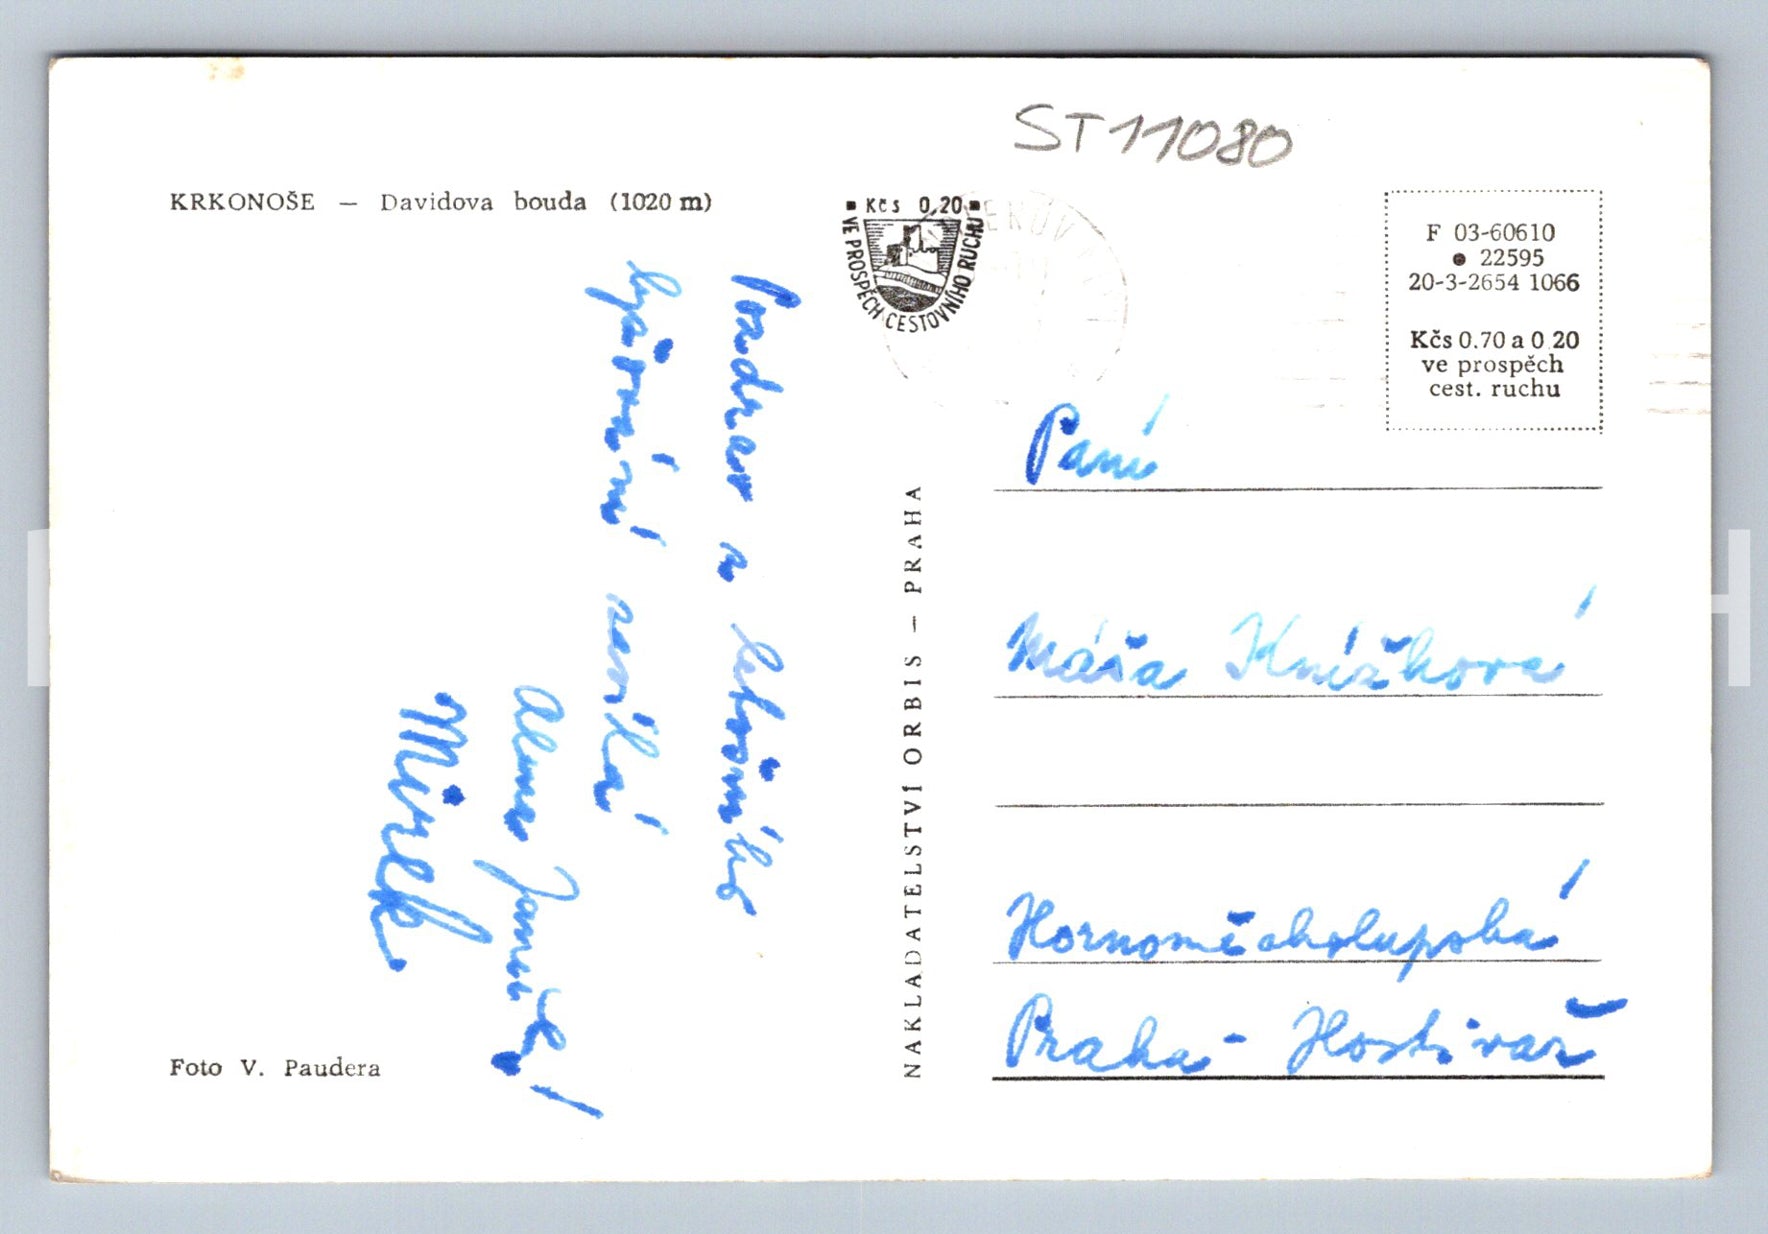 ST11080
KRKONOŠE — Davidova bouda (1020 m)
Kčs 0,20
VE PROSPĚCH CESTOVNÍHO RUCHU
F 03-60610
● 22595
20-3-2654 1066
Kčs 0.70 a 0.20
ve prospěch
cest. ruchu
Pozdrav z letošního
lyžování zasílá
Alena Janů
Mirek
Paní
Máša Knížková
Hornoměcholupská
Praha - Hostivař
NAKLADATELSTVÍ ORBIS — PRAHA
Foto V. Paudera